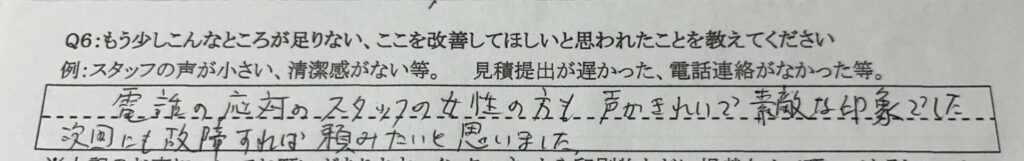 Q6:もう少しこんなところが足りない、ここを改善してほしいと思われたことを教えてください
例:スタッフの声が小さい、清潔感がない等。 見積提出が遅かった、電話連絡がなかった等。
電話の応対のスタッフの女性の方も声がきれいで素敵な印象でした
次回にも故障すれば頼みたいと思いました